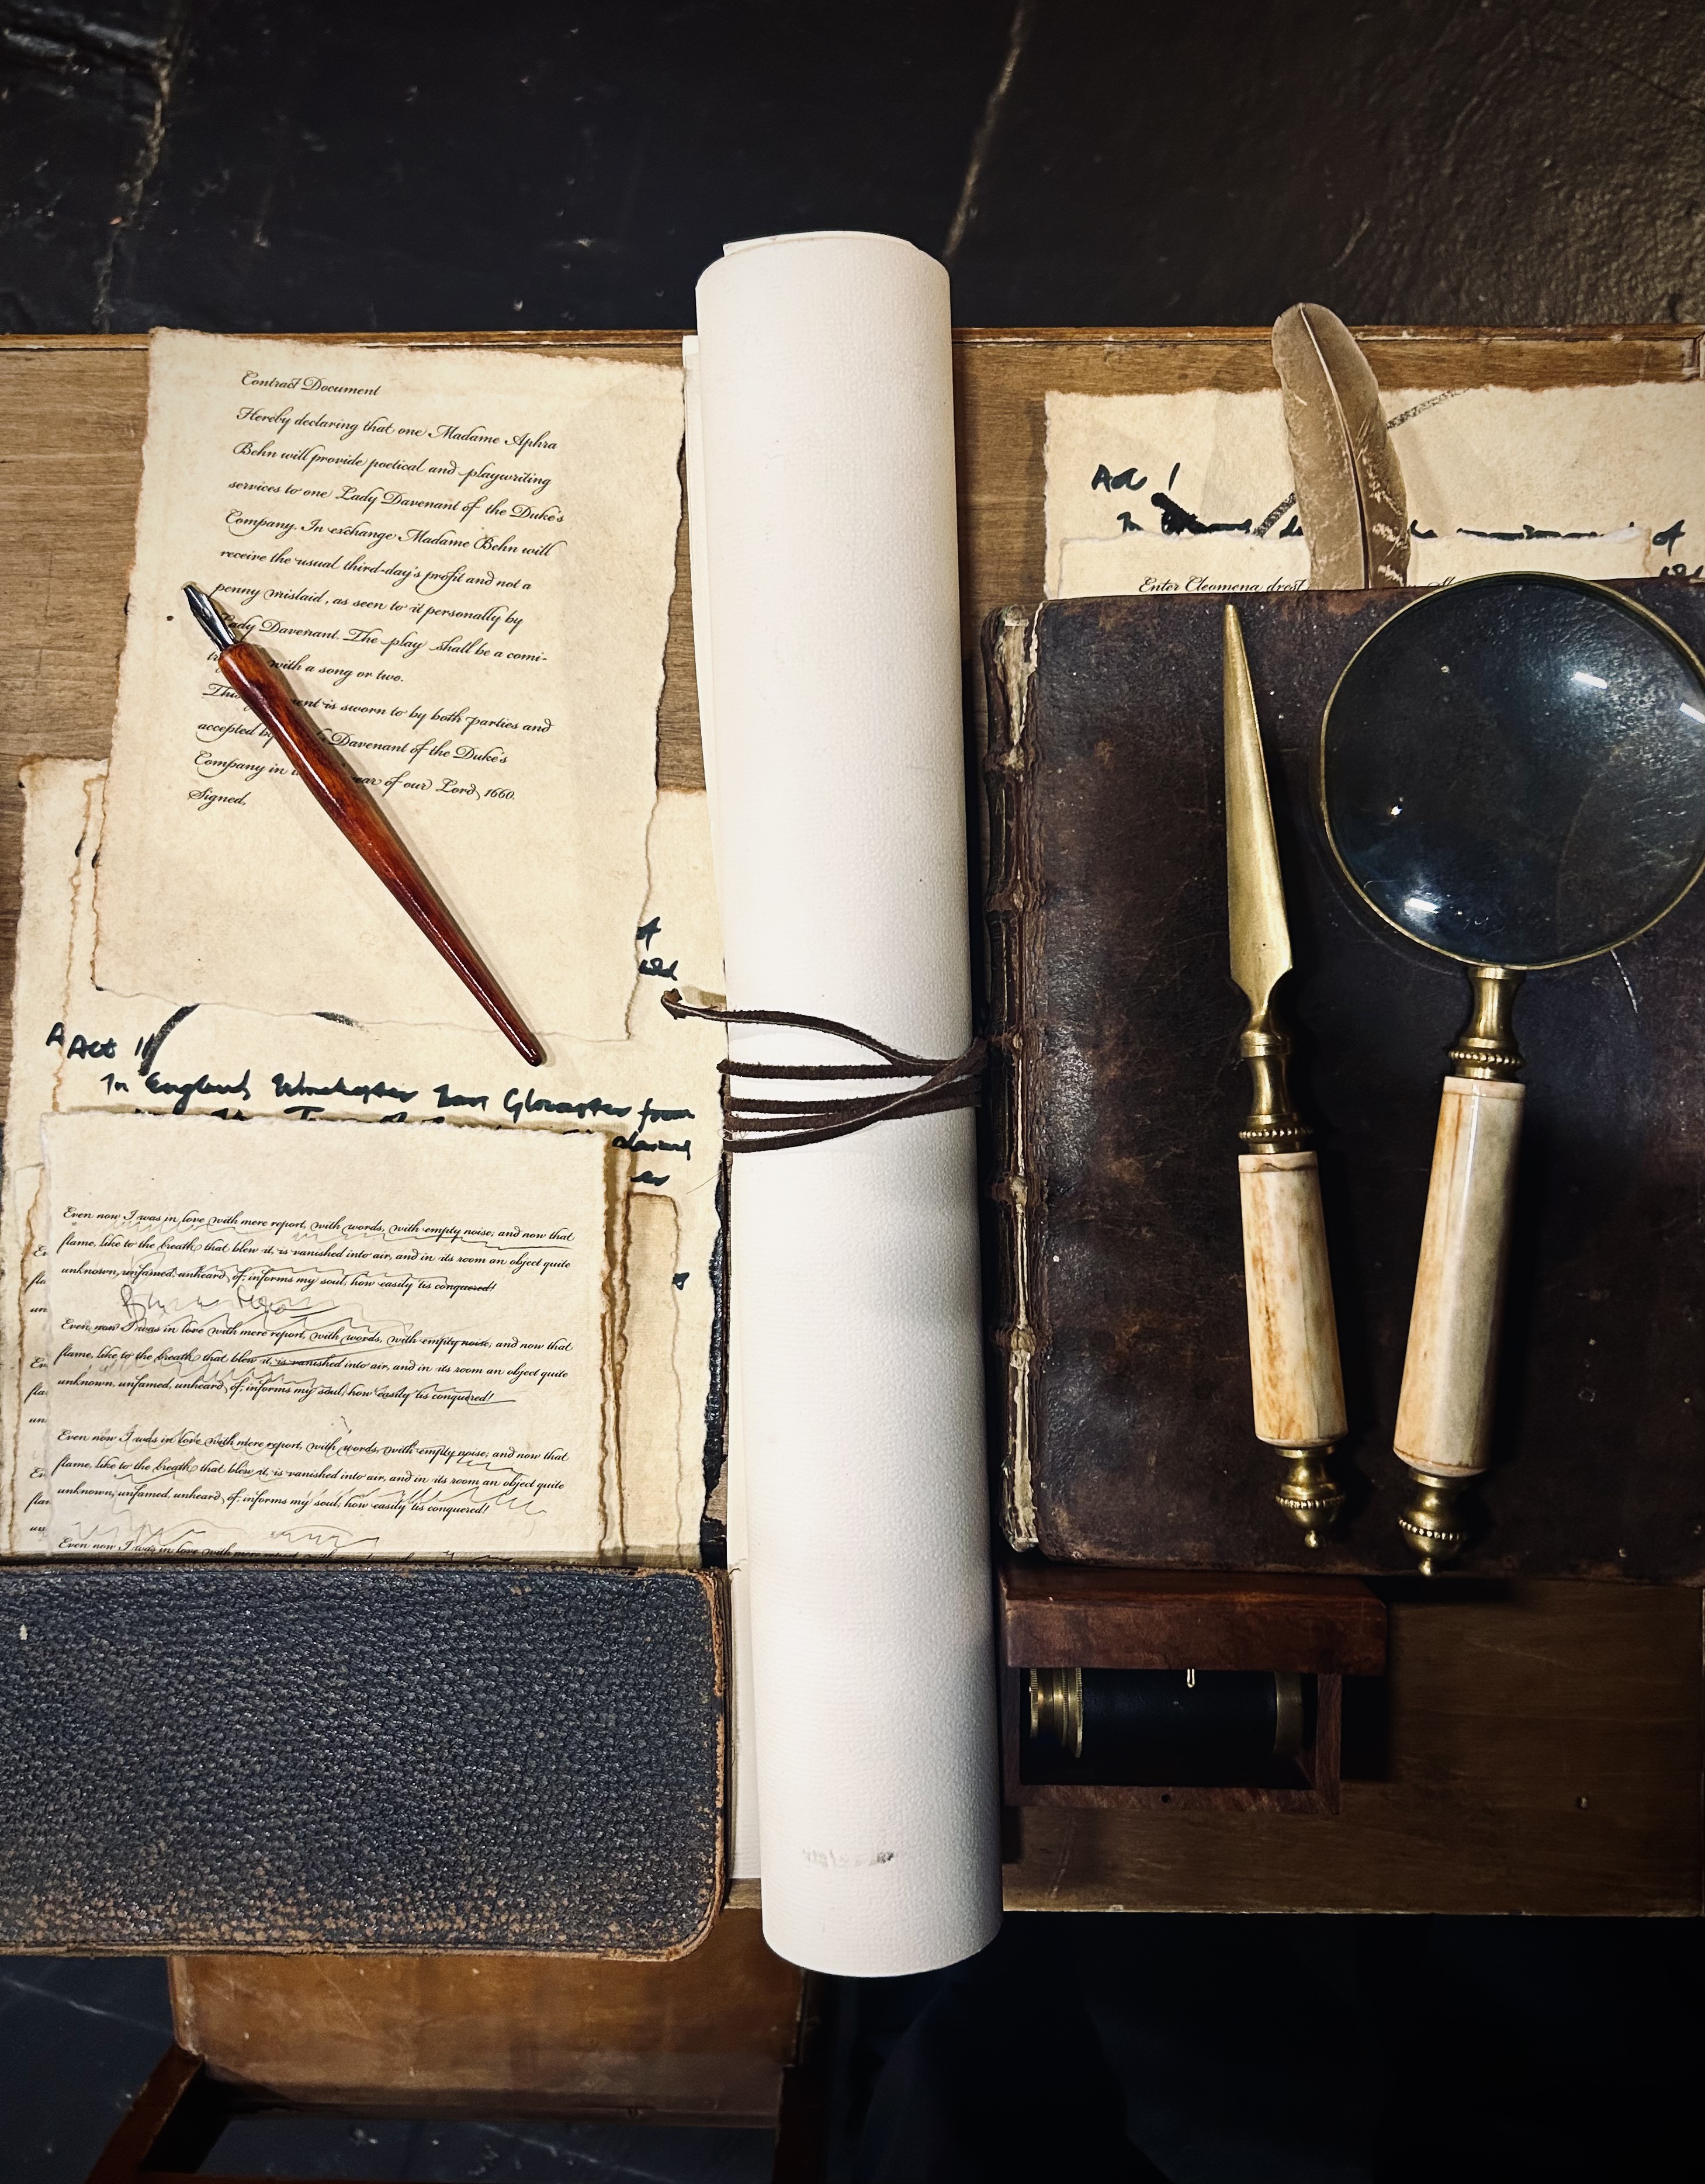 Contract Document
Hereby declaring that one Madame Aphra
Behn will provide poetical and playwriting
services to one Lady Davenant of the Duke's
Company. In exchange Madame Behn will
receive the usual third-day's profit and not a
penny mislaid, as seen to it personally by
Lady Davenant. The play shall be a comi-
with a song or two.
is sworn to by both parties and
accepted by Davenant of the Duke's
Company in of our Lord, 1660.
Signed,
of
A Act 1
In England Winchester Gloucester from
Even now I was in love with mere report, with words, with empty noise; and now that
flame, like to the breath that blew it, is vanished into air, and in its room an object quite
unknown, unfamed, unheard of; informs my soul; how easily 'tis conquered!
Even now I was in love with mere report, with words, with empty noise; and now that
flame, like to the breath that blew it, is vanished into air, and in its room an object quite
unknown, unfamed, unheard of; informs my soul; how easily 'tis conquered!
Even now I was in love with mere report, with words, with empty noise; and now that
flame, like to the breath that blew it, is vanished into air, and in its room an object quite
unknown, unfamed, unheard of; informs my soul; how easily 'tis conquered!
Even now I was in love with mere report, with
Act 1
In of
Enter Cleomena drest